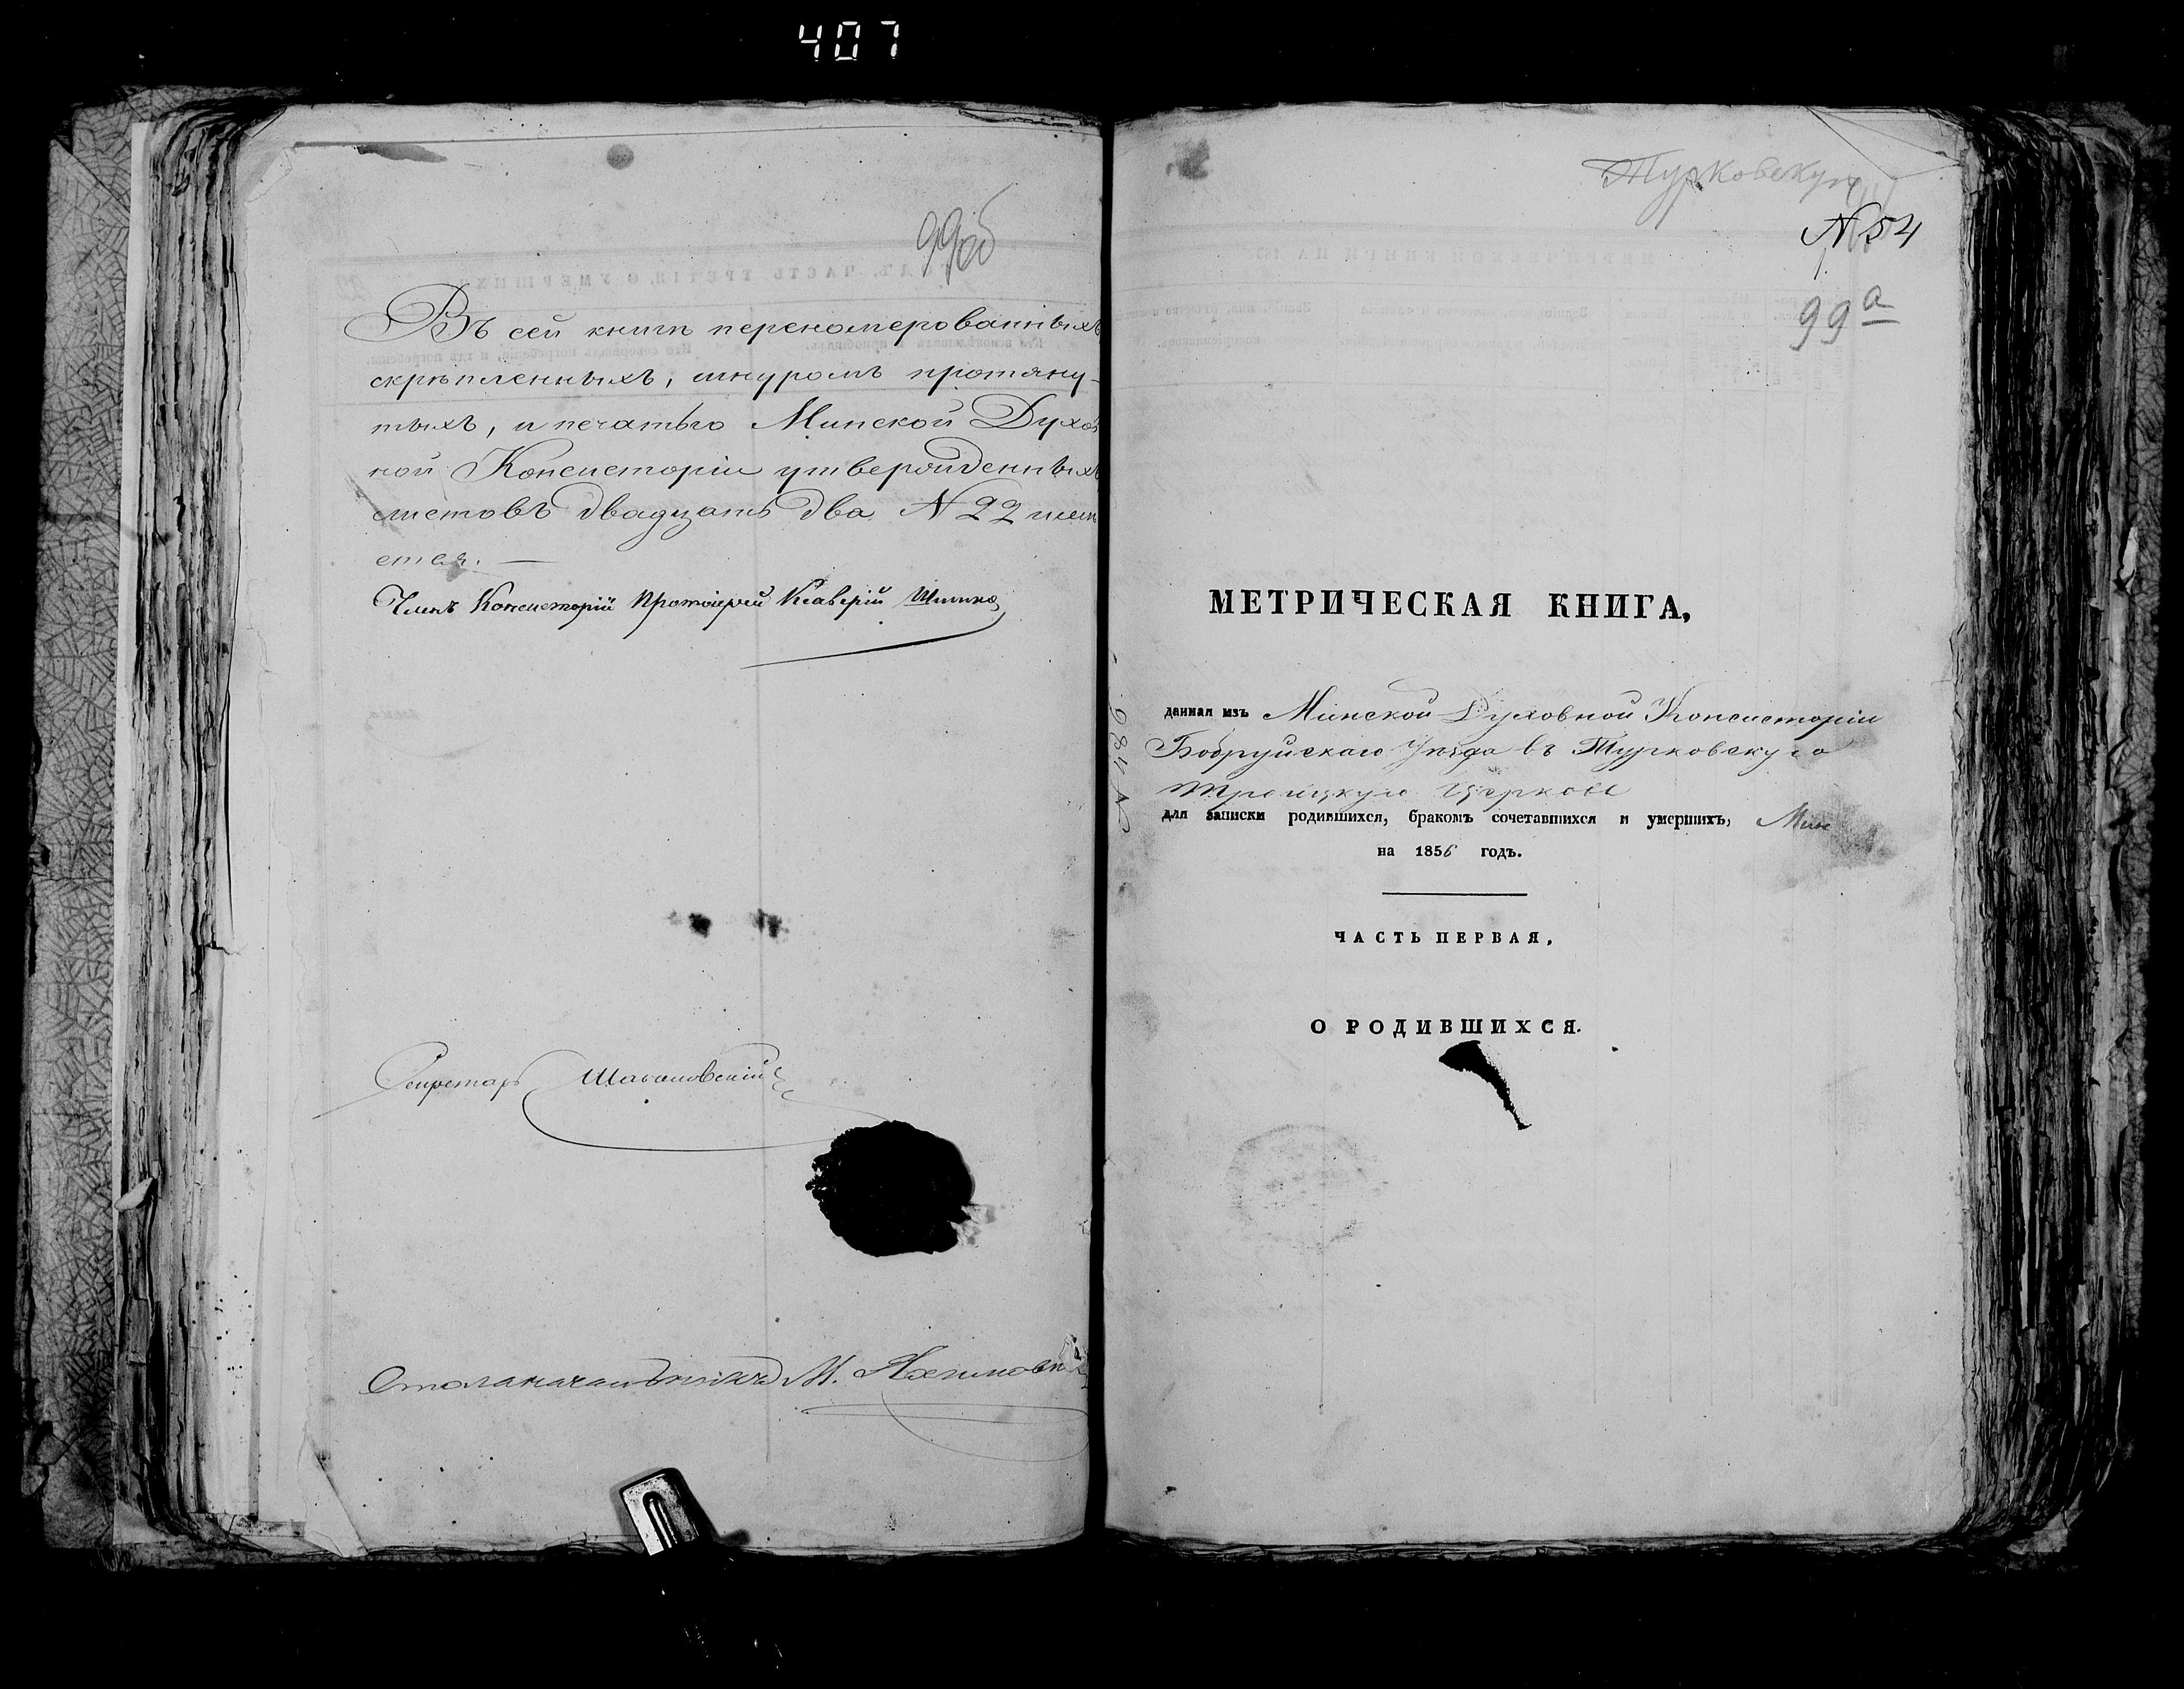 407
99об
Въ сей книгѣ перенomерованныхъ
скрѣпленныхъ, шнуромъ протяну-
тыхъ, и печатью Минской Духов
ной Консисторіи утвержденныхъ
листовъ двадцать два N 22 имѣ
ется. —
Членъ Консисторіи Протоіерей Ксаверій
Секретарь
Столоначальникъ М.
Турковскую
N 54
99а
МЕТРИЧЕСКАЯ КНИГА,
данная изъ Минской Духовной Консисторіи
Бобруйскаго Уѣзда въ Турковскую
Троицкую Церковь
для записки родившихся, бракомъ сочетавшихся и умершихъ,
на 1856 годъ.
ЧАСТЬ ПЕРВАЯ,
О РОДИВШИХСЯ.